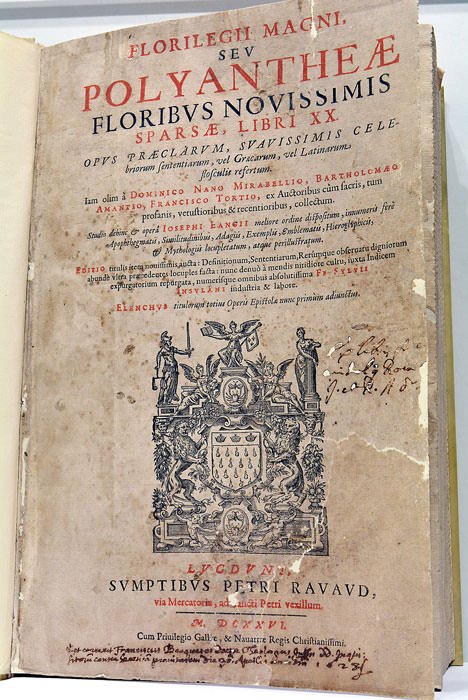 FLORILEGII MAGNI,
SEV
POLYANTHEÆ
FLORIBVS NOVISSIMIS
SPARSÆ, LIBRI XX.
OPVS PRÆCLARVM, SVAVISSIMIS CELE-
briorum sententiarum, vel Græcarum, vel Latinarum
flosculis refertum.
Iam olim à DOMINICO NANO MIRABELLIO, BARTHOLOMÆO
AMANTIO, FRANCISCO TORTIO, ex Auctoribus cùm sacris, tum
profanis, vetustioribus & recentioribus, collectum.
Studio dehinc & operâ IOSEPHI LANGII meliore ordine dispositum, innumeris ferè
Apophthegmatis, Similitudinibus, Adagiis, Exemplis, Emblematis, Hieroglyphicis,
& Mythologiis locupletatum, atque perillustratum.
EDITIO novissima, aucta: Definitionum, Sententiarum, Rerumque observatu digniorum
abunde vltra præcedentes locuples facta: nunc denuò à mendis nitidiore cultu, iuxta Indicem
expurgatorium repurgata, numerisque omnibus absolutissima FR. SYLVII
INSVLANI industria & labore.
ELENCHVS titulorum totius Operis Epistolæ nunc primùm adiunctus.
LVGDVNI,
SVMPTIBVS PETRI RAVAVD,
via Mercatoria, ad sancti Petri vexillum.
M. DCXXVI.
Cum Priuilegio Galliæ, & Nauarræ Regis Christianissimi.